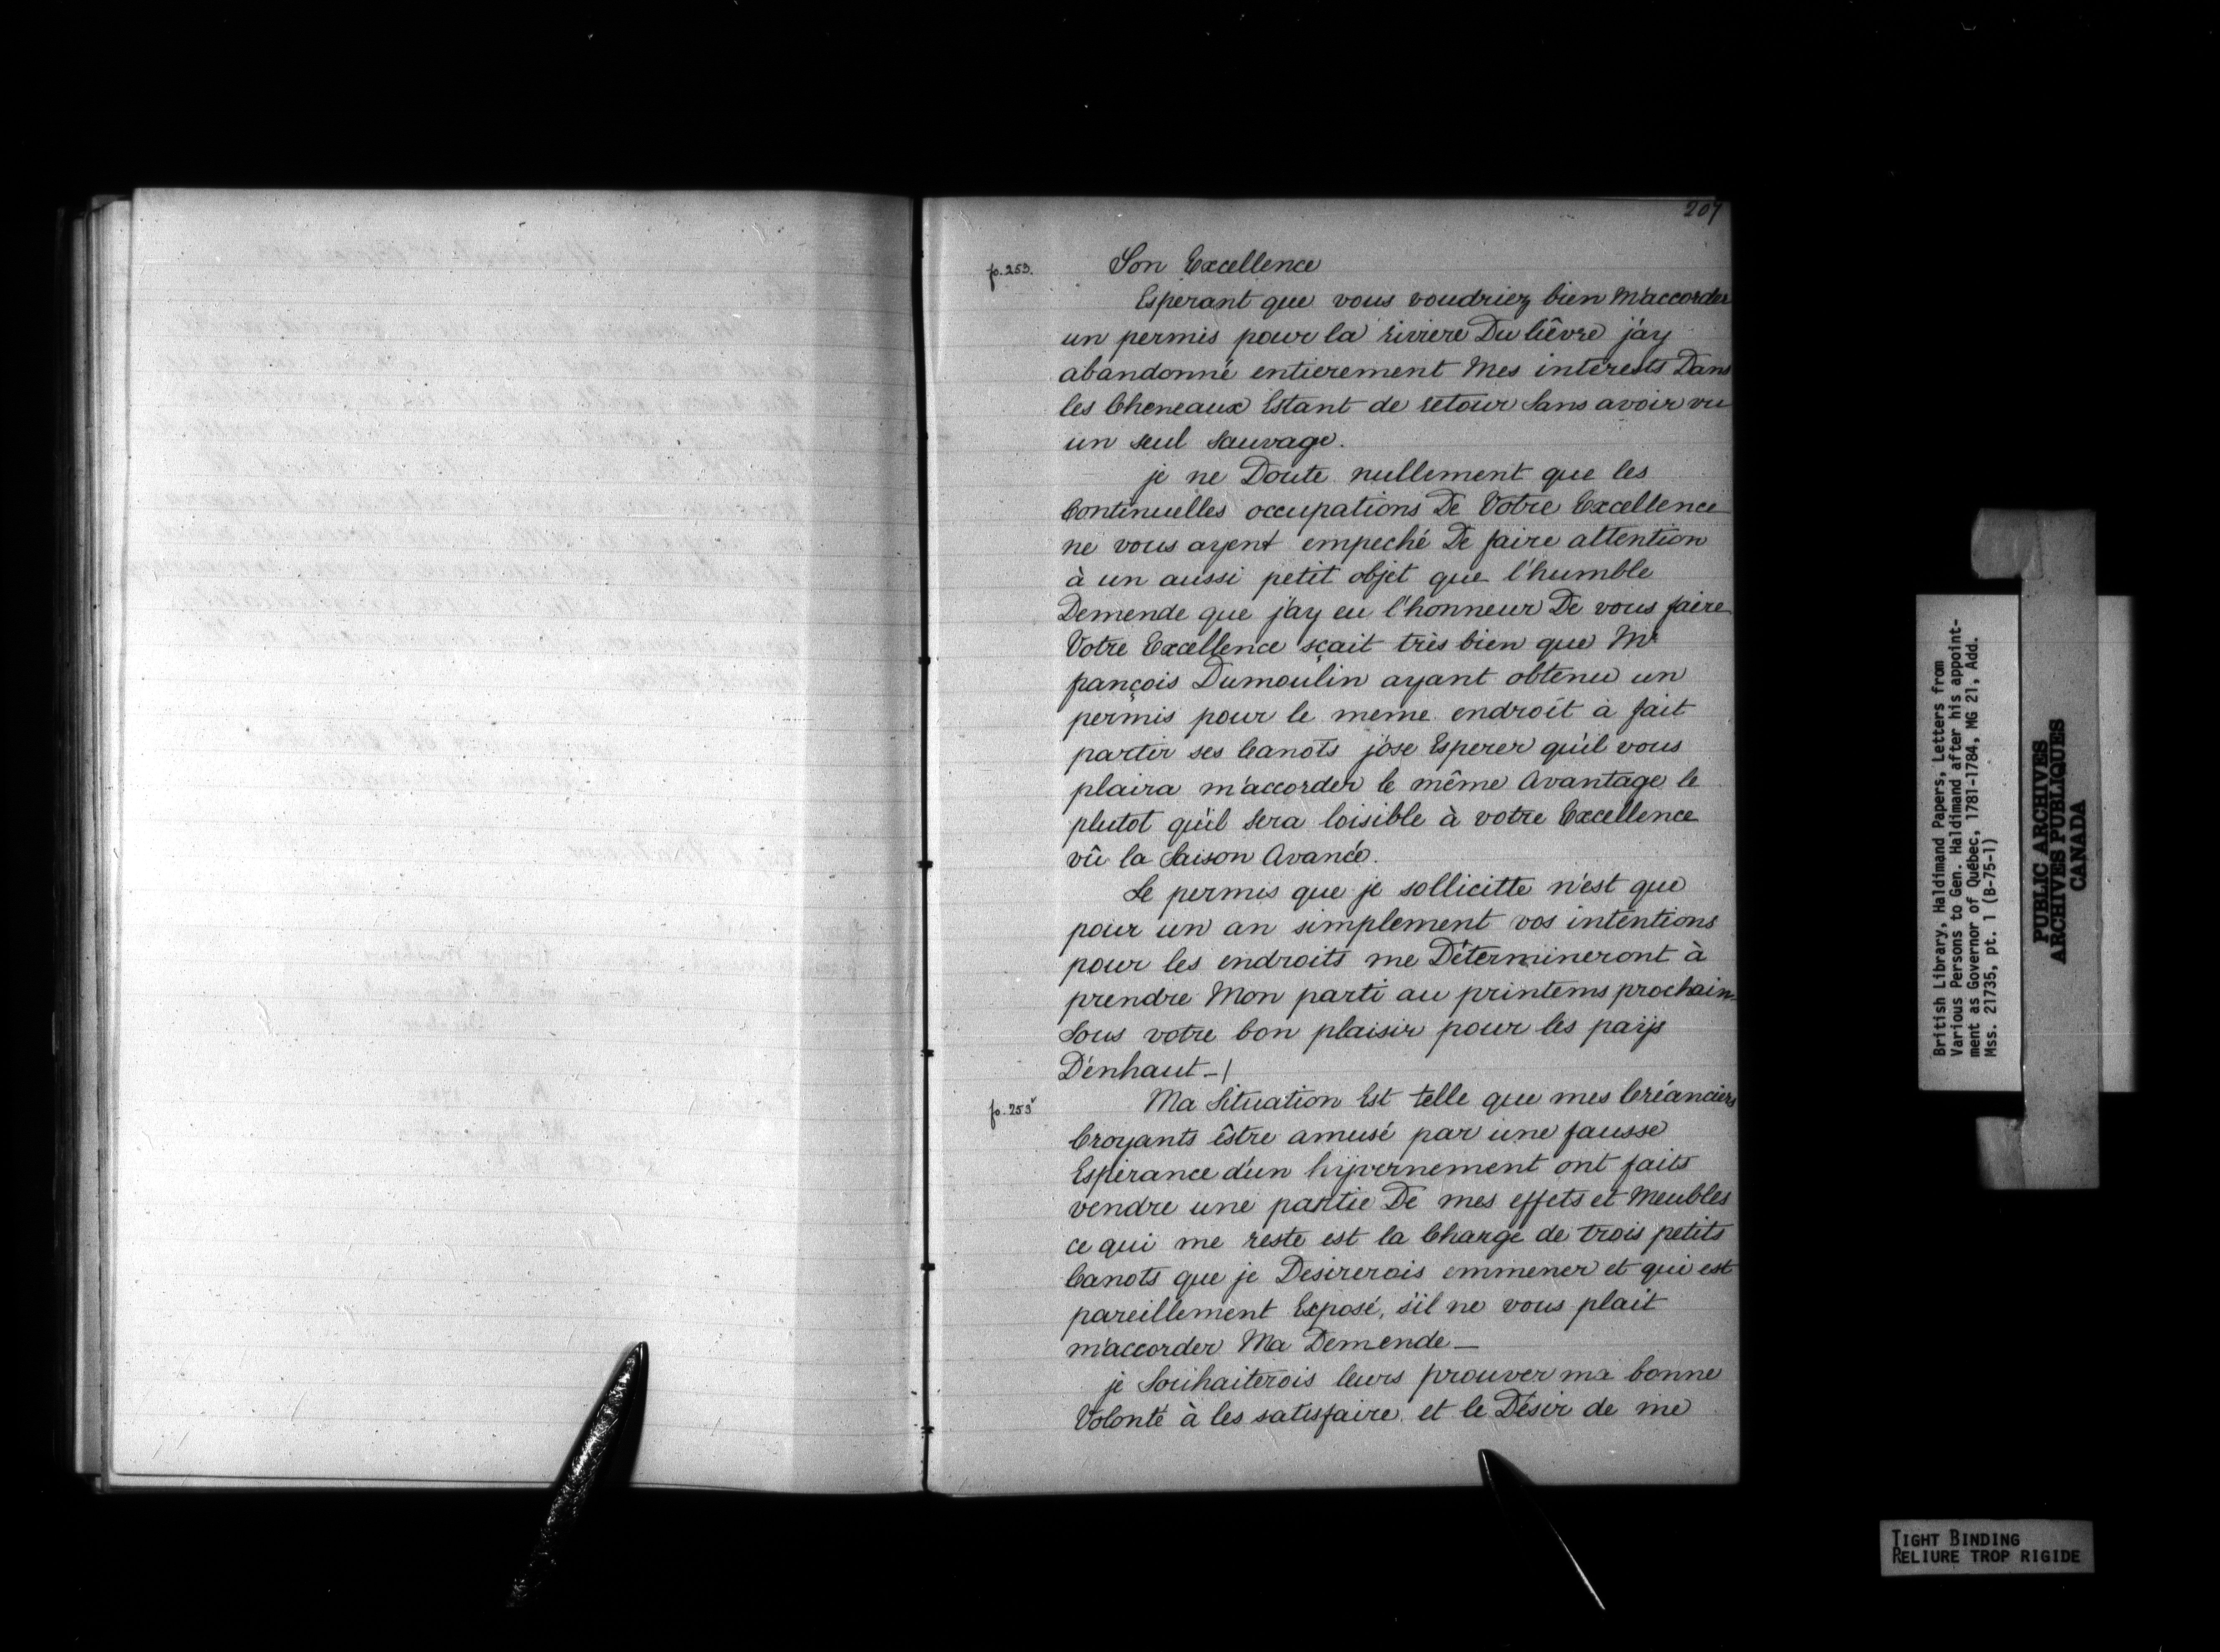 207
p. 253.
Son Excellence
Esperant que vous voudriez bien M'accorder
un permis pour la riviere Du liêvre j'ay
abandonné entierement Mes interests Dans
les Cheneaux Estant de retour Sans avoir vu
un seul Sauvage.
je ne Doute nullement que les
Continuelles occupations De Votre Excellence
ne vous ayent empeché De faire attention
à un aussi petit objet que l'humble
Demende que j'ay eu l'honneur De vous faire
Votre Excellence sçait très bien que Mr
françois Dumoulin ayant obtenu un
permis pour le meme endroit a fait
partir ses Canots j'ose Esperer qu'il vous
plaira m'accorder le même Avantage le
plutot qu'il Sera loisible à votre Excellence
vû la Saison Avancée.
Le permis que je sollicitte n'est que
pour un an simplement vos intentions
pour les endroits me Détermineront à
prendre Mon parti au printems prochain
Sous votre bon plaisir pour les paÿs
D'enhaut_/
fo. 253v
Ma Situation Est telle que mes Créanciers
Croyants êstre amusé par une fausse
Espérance d'un hyvernement ont faits
vendre une partie De mes effets et Meubles
ce qui me reste est la Charge de trois petits
Canots que je Desirerois emmener et qui est
pareillement Exposé, s'il ne vous plait
m'accorder Ma Demende_
je Souhaiterois leurs prouver ma bonne
Volonté à les satisfaire, et le Désir de me
British Library, Haldimand Papers, Letters from
Various Persons to Gen. Haldimand after his appoint-
ment as Governor of Québec, 1781-1784, MG 21, Add.
Mss. 21735, pt. 1 (B-75-1)
PUBLIC ARCHIVES
ARCHIVES PUBLIQUES
CANADA
TIGHT BINDING
RELIURE TROP RIGIDE